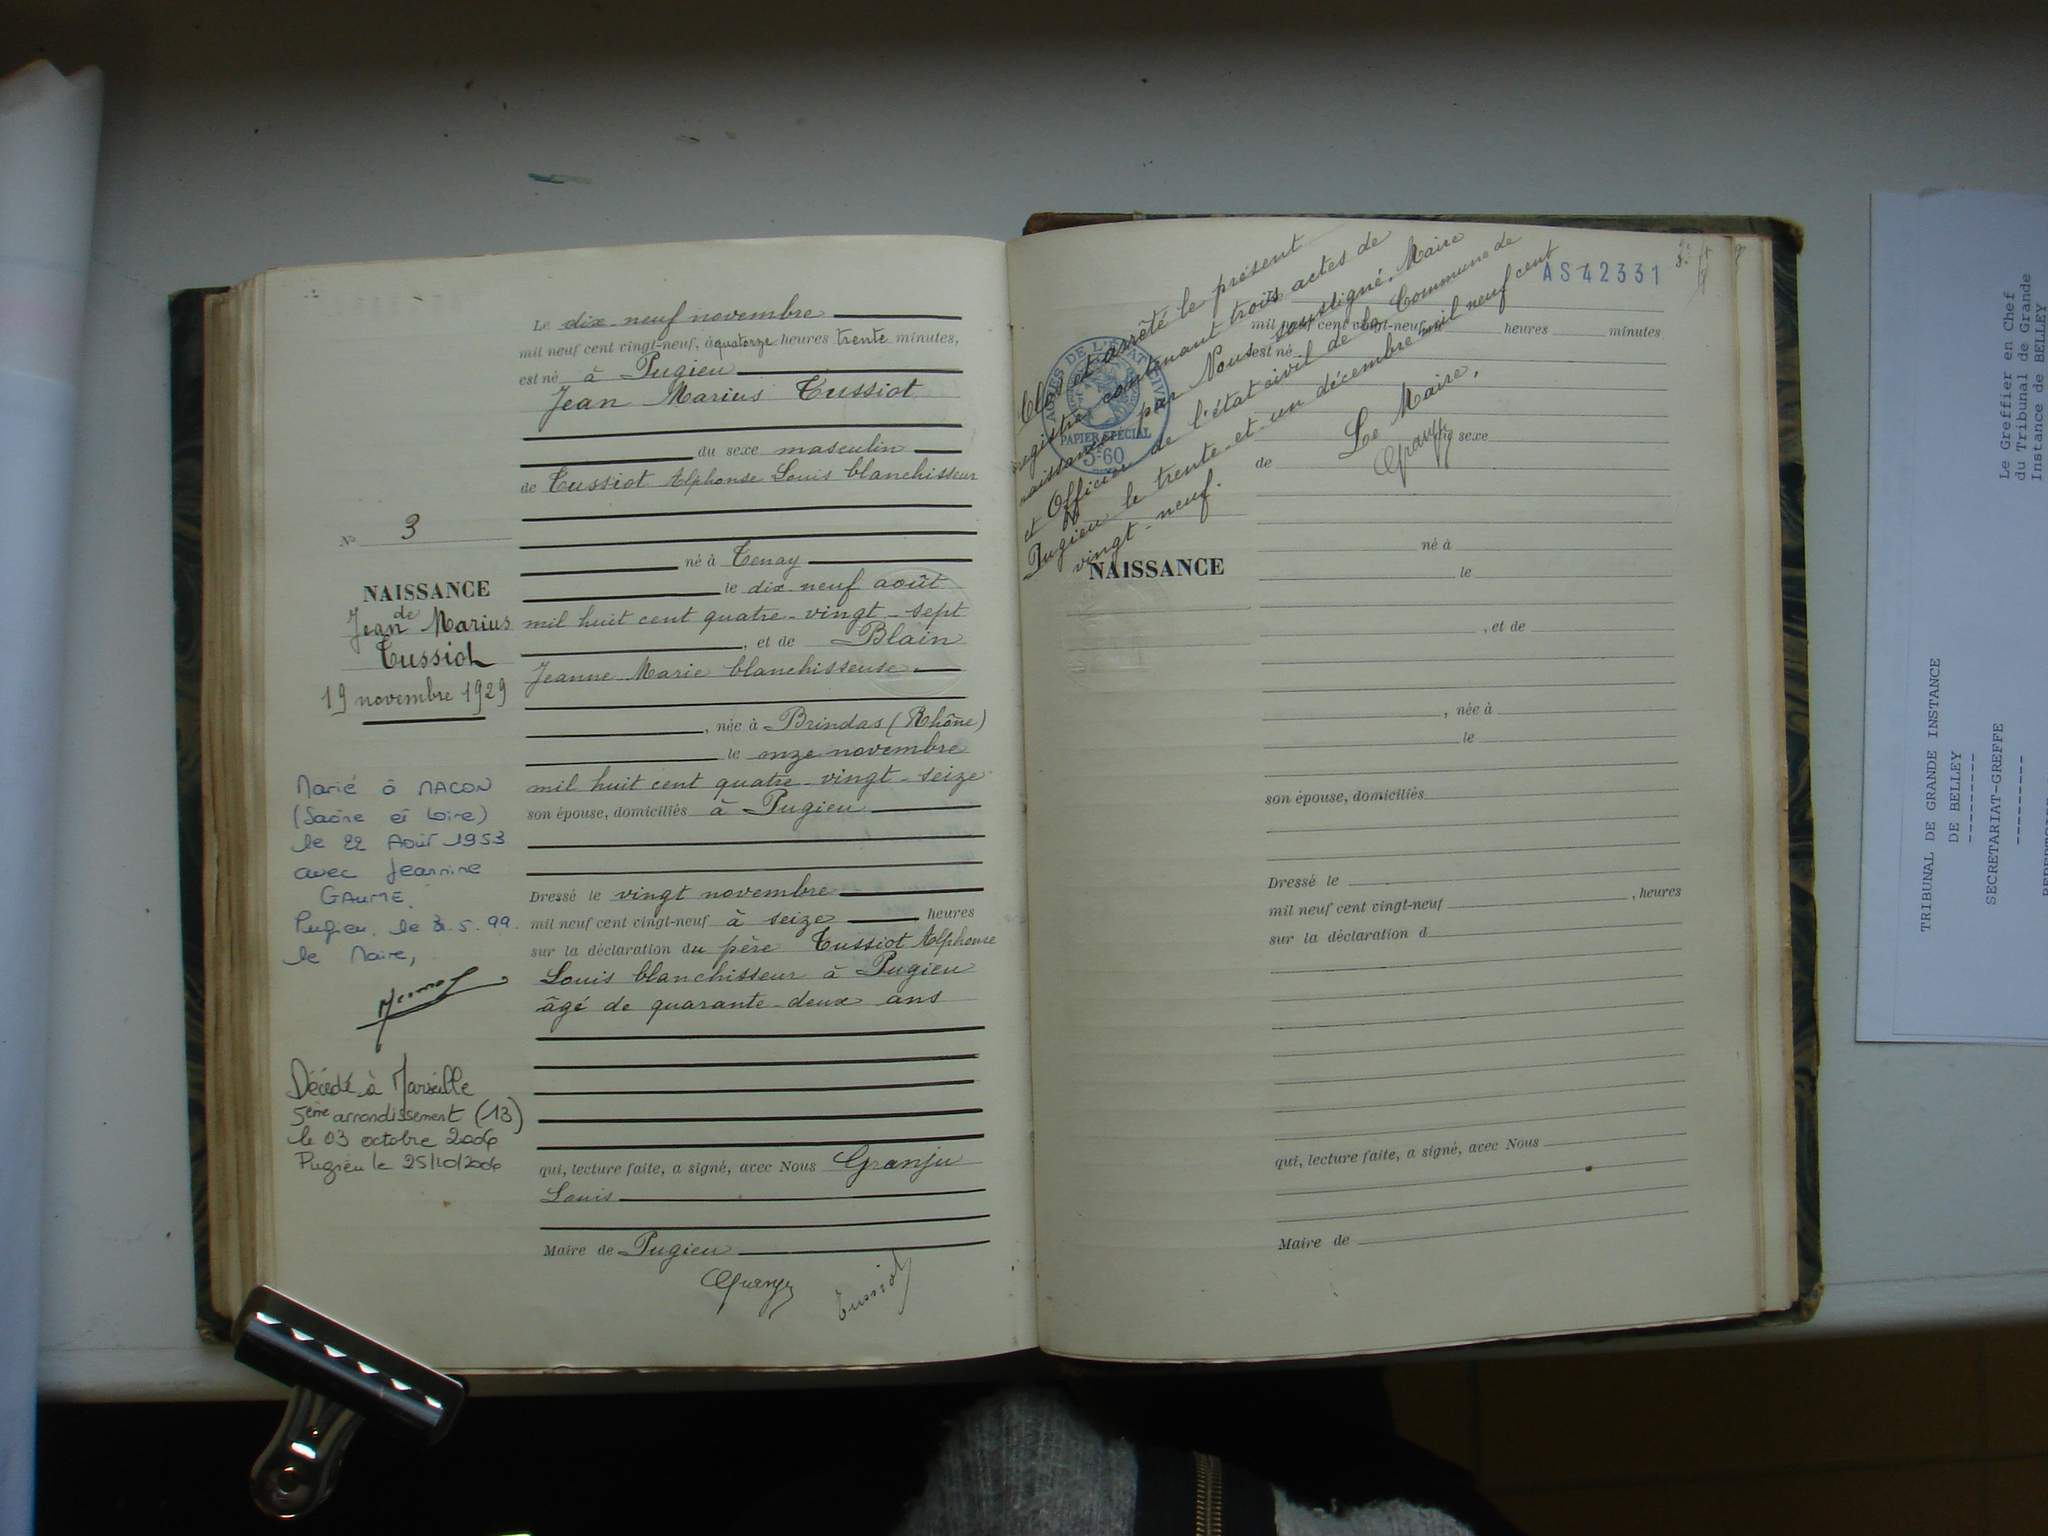 Le dix-neuf novembre
mil neuf cent vingt-neuf, à quatorze heures trente minutes,
est né à Pugieu
Jean Marius Tussiot
du sexe masculin
de Tussiot Alphonse Louis blanchisseur
né à Tenay
le dix-neuf août
mil huit cent quatre-vingt-sept
, et de Blain
Jeanne Marie blanchisseuse
, née à Brindas (Rhône)
le onze novembre
mil huit cent quatre-vingt-seize
son épouse, domiciliés à Pugieu
Dressé le vingt novembre
mil neuf cent vingt-neuf à seize heures
sur la déclaration du père Tussiot Alphonse
Louis blanchisseur à Pugieu
âgé de quarante-deux ans
qui, lecture faite, a signé, avec Nous Granju
Louis
Maire de Pugieu
Granju Tussiot
N° 3
NAISSANCE
de
Jean Marius
Tussiot
19 novembre 1929
Marié à MACON
(Saône et Loire)
le 22 Août 1953
avec Jeannine
GAUME.
Pugieu, le 5.99.
le Maire,
Décédé à Marseille
5ème arrondissement (13)
le 03 octobre 2006
Pugieu le 25/10/2006
AS 42331
Clos et arrêté le présent
registre contenant trois actes de
naissance par Nous soussigné, Maire
et Officier de l'état civil de la Commune de
Pugieu le trente-et-un décembre mil neuf cent
vingt-neuf.
Le Maire,
Granju
DE L'ÉTAT CIVIL
PAPIER SPÉCIAL
3.60
mil neuf cent vingt-neuf heures minutes
est né
du sexe
de
NAISSANCE
né à
le
, et de
, née à
le
son épouse, domiciliés
Dressé le
mil neuf cent vingt-neuf , heures
sur la déclaration d
qui, lecture faite, a signé, avec Nous
Maire de
Le Greffier en Chef
du Tribunal de Grande
Instance de BELLEY
TRIBUNAL DE GRANDE INSTANCE
DE BELLEY
---------
SECRETARIAT-GREFFE
---------